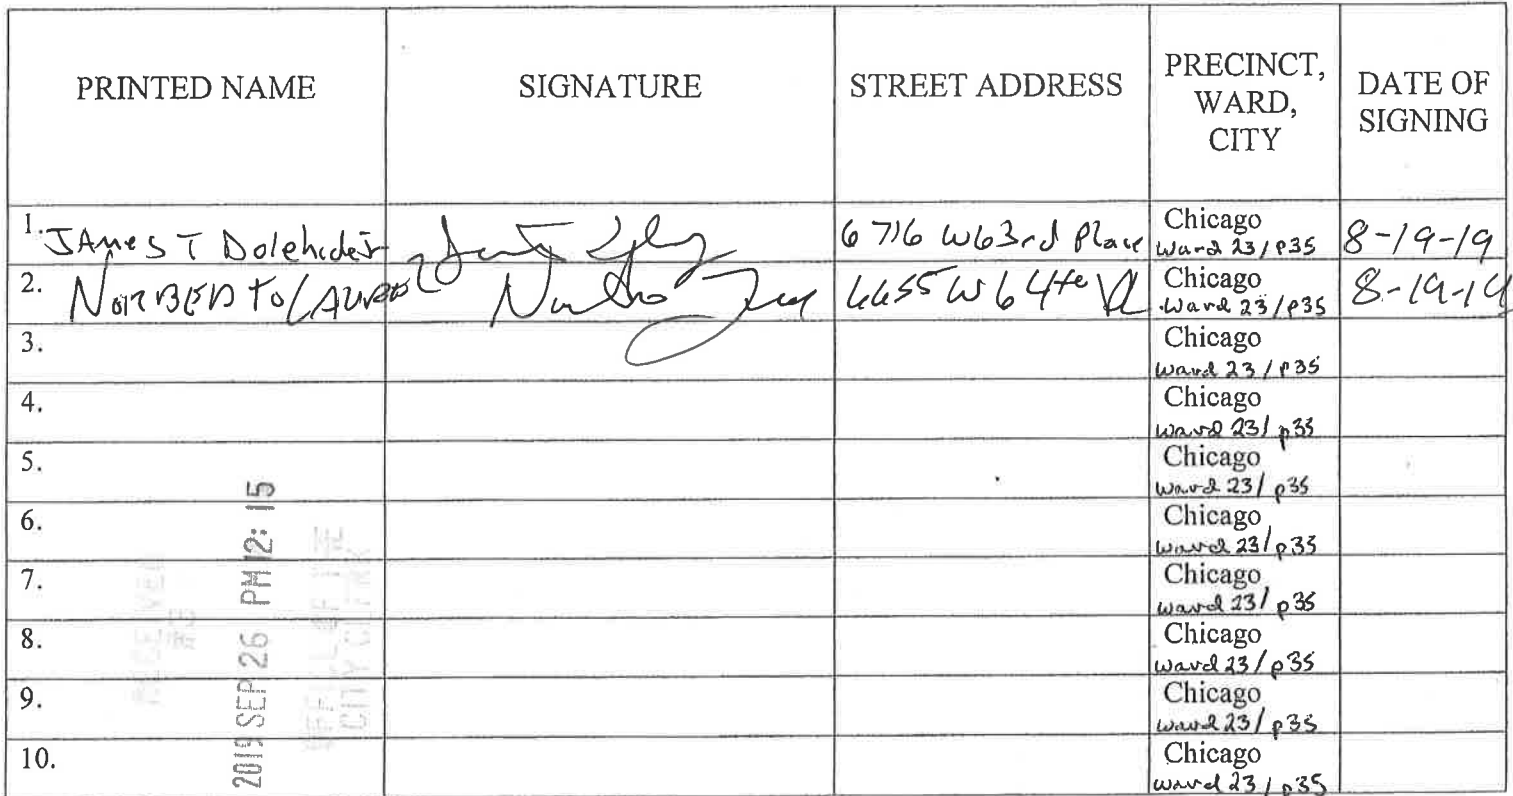 PRINTED NAME
SIGNATURE
STREET ADDRESS
PRECINCT,
WARD,
CITY
DATE OF
SIGNING
1. JAmes T Dolehide 6716 W63rd Place Chicago
Ward 23/P35 8-19-19
2. NORBERTO W 64 Chicago
Ward 23/P35 8-19-19
3. Chicago
Ward 23/P35
4. Chicago
Ward 23/p35
5. Chicago
Ward 23/p35
6. Chicago
Ward 23/p35
7. Chicago
Ward 23/p35
8. Chicago
Ward 23/p35
9. Chicago
Ward 23/p35
10. Chicago
Ward 23/p35
RECEIVED
2019 SEP 26 PM 12: 15
OFFICE OF THE
CITY CLERK